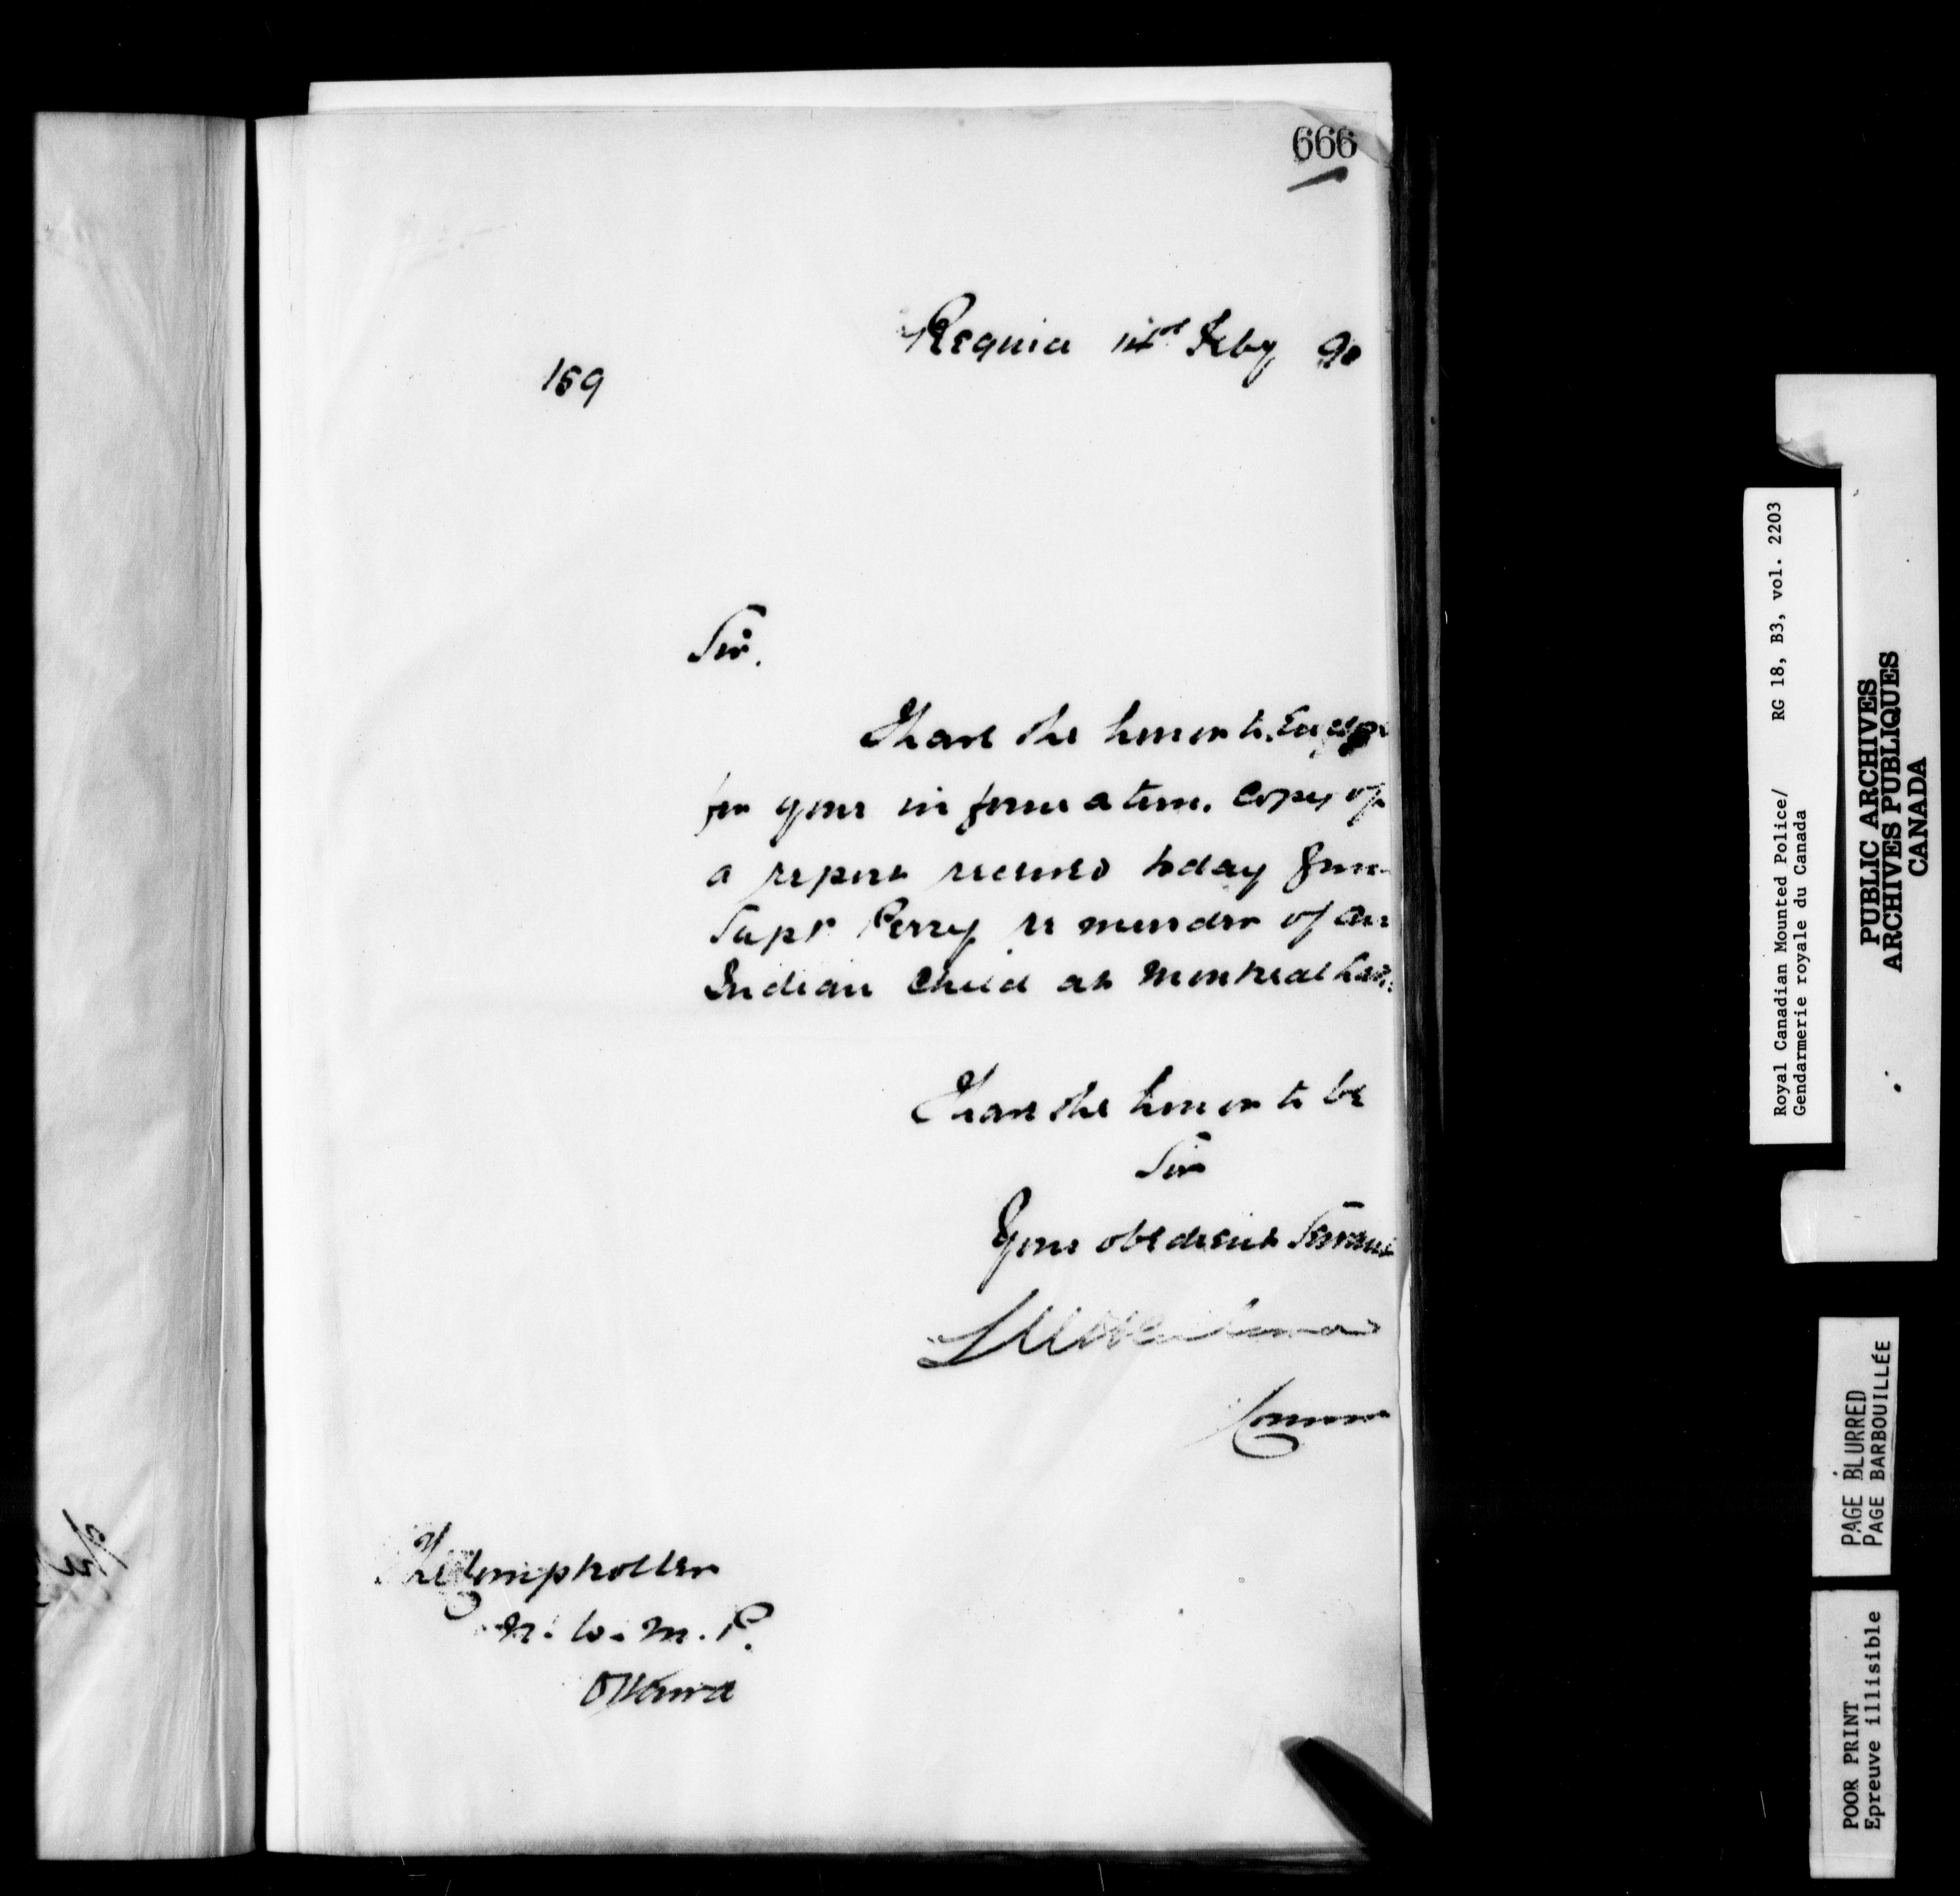 666
Regina 1st Feby 90
159
Sir.
I have the honor to
for your information. Copy of
a report received today from
Supt Perry re murder of an
Indian Child at Montreal
I have the honor to be
Sir
Your obedient Servant
Commr
The Comptroller
N. W. M. P.
Ottawa
Royal Canadian Mounted Police/ RG 18, B3, vol. 2203
Gendarmerie royale du Canada
PUBLIC ARCHIVES
ARCHIVES PUBLIQUES
CANADA
PAGE BLURRED
PAGE BARBOUILLÉE
POOR PRINT
Epreuve illisible